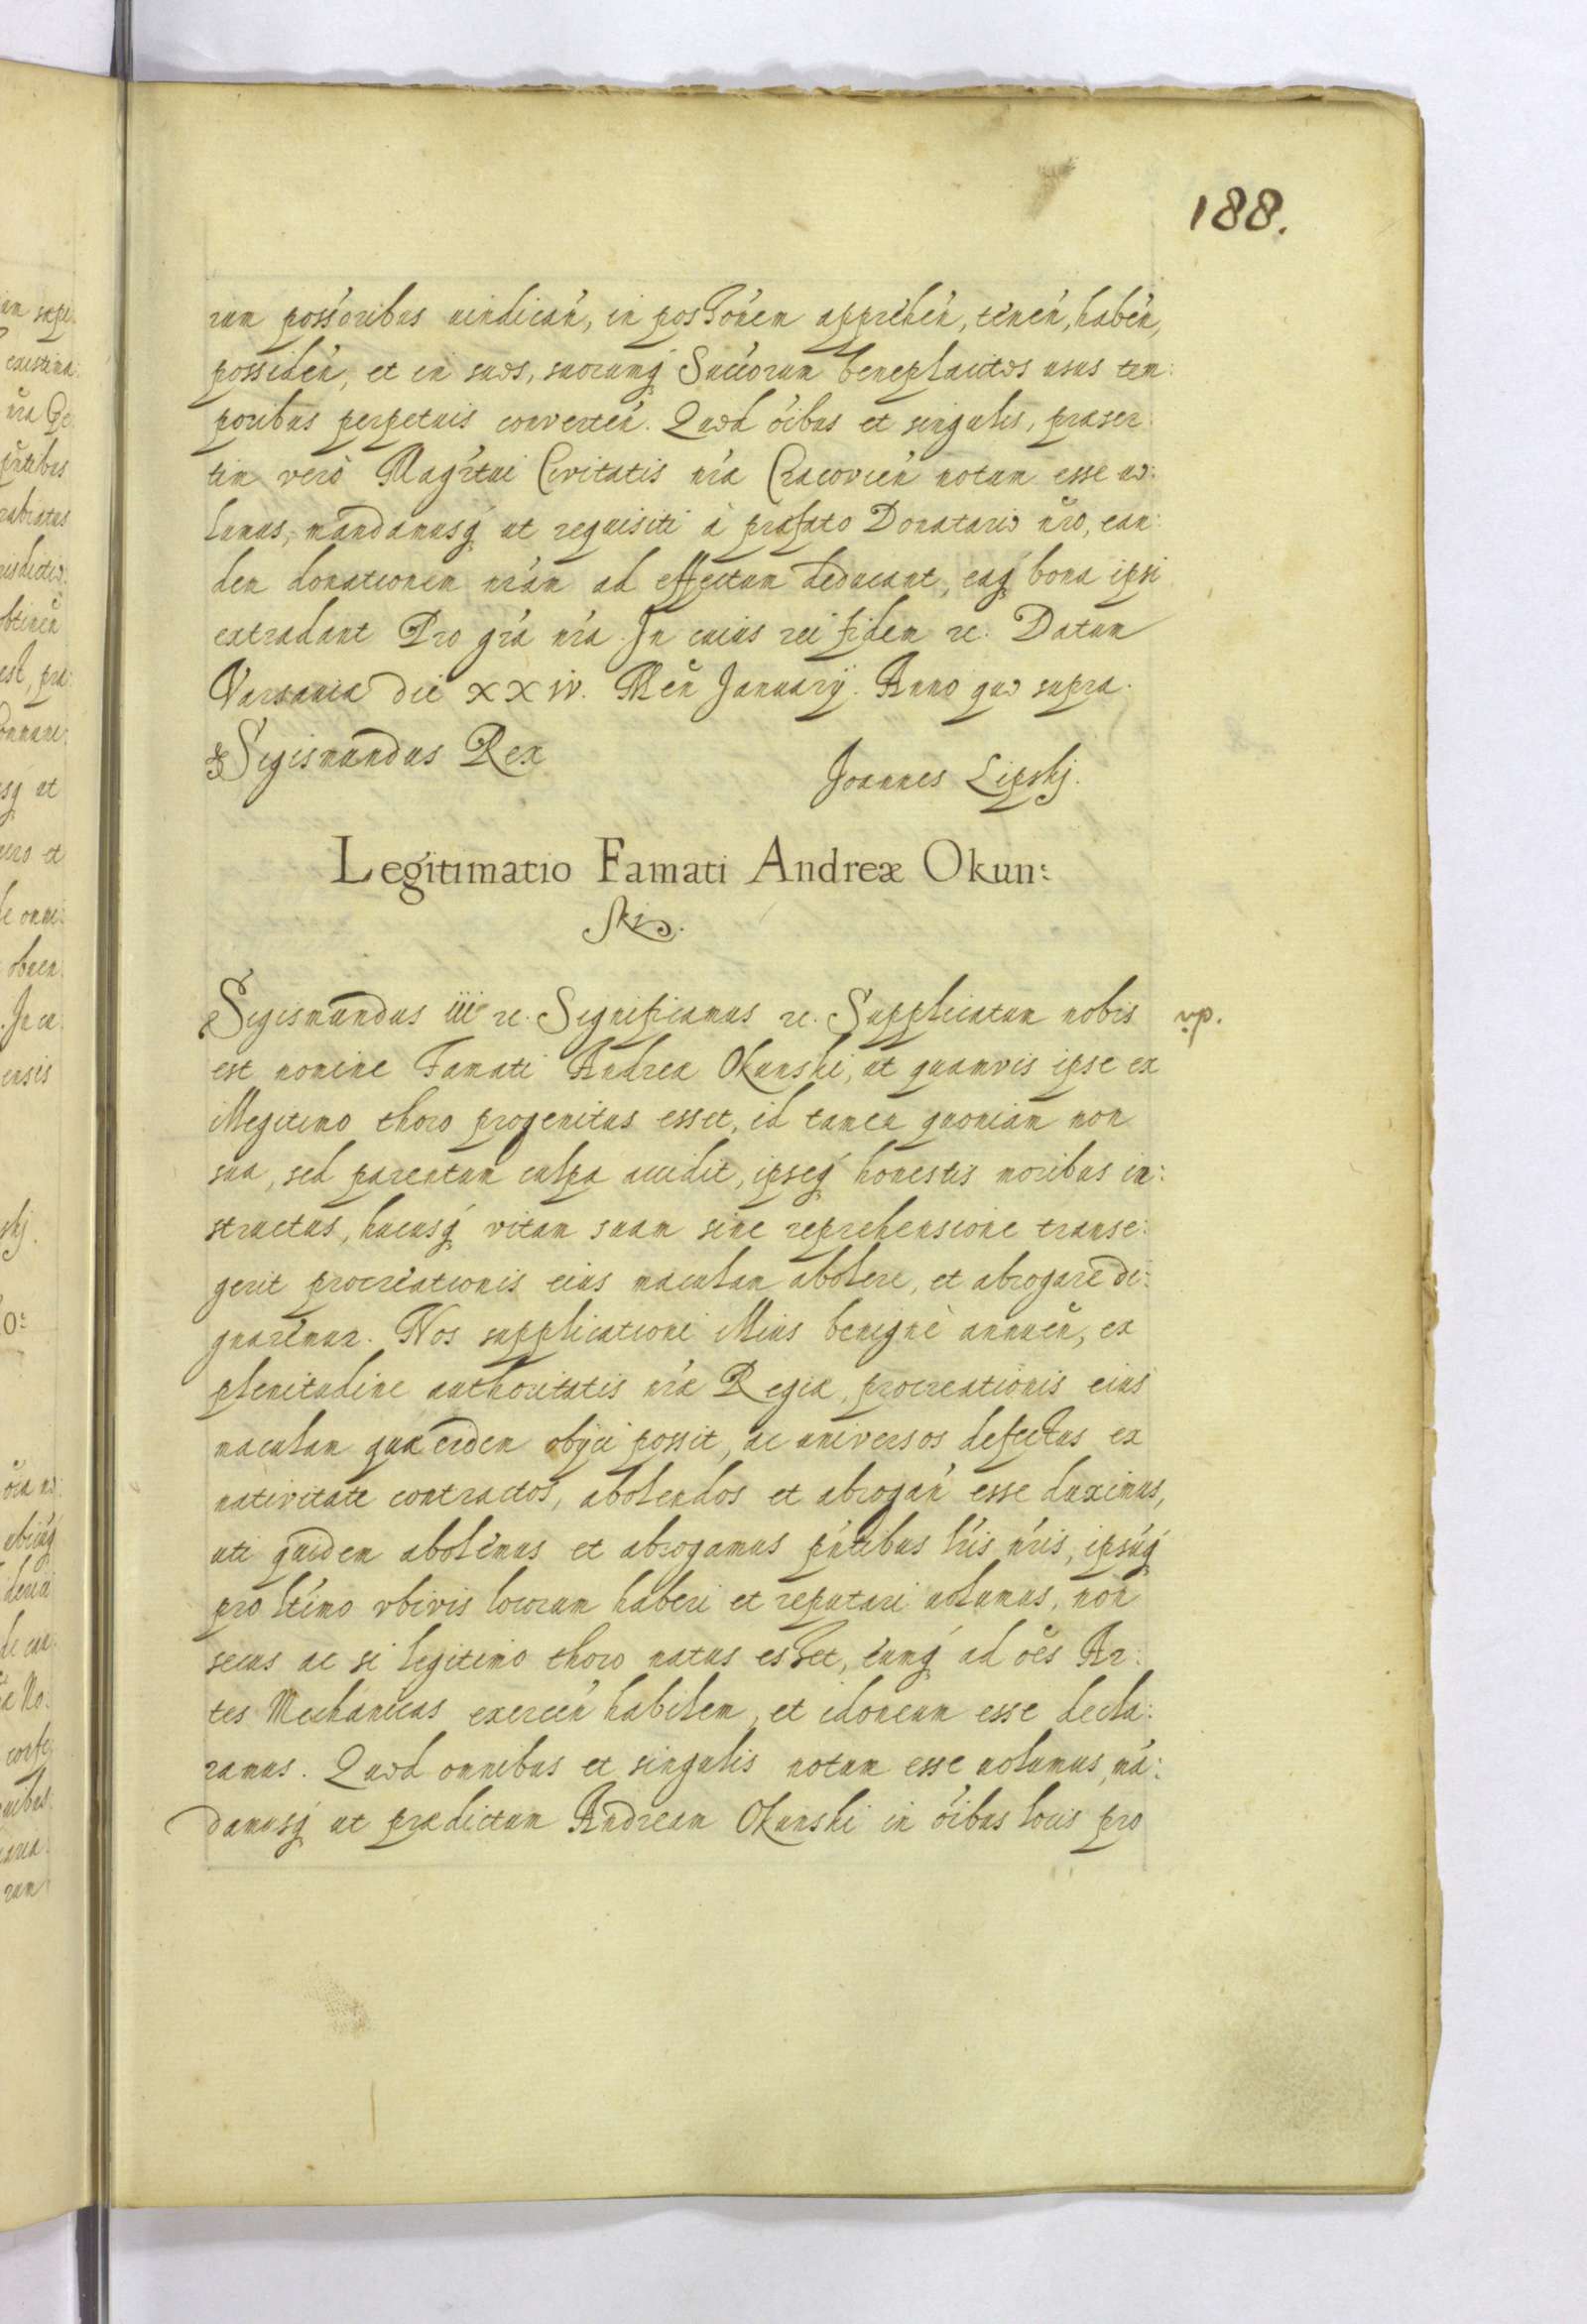 188.
rum poss'oribus uindicań, in possońem appræheń, teneń, habeń,
possideń, et in suos, suorumq́ Succ'orum beneplacitos usus tem:
poribus perpetuis converteń. Quod óibus et singulis, præser:
tim verò Magr'tui Civitatis nr'æ Cracovień notum esse uo:
lumus, mandamusq́ ut requisiti à præfato Donatario nr̃o, ean:
dem donationem nr'am ad effectum deducant, eaq́ bona ipsi
extradant Pro gr'a nr'a. In cuius rei fidem ꝛc. Datum
Varsauiæ die XXIV. Meň Januarÿ. Anno quo supra.
Sigismundus Rex
Joannes Lipskj.
Legitimatio Famati Andreæ Okun:
ski.
Sigismundus iii ꝛc. Significamus ꝛc. Supplicatum nobis
vp.
est nomine Famati Andreæ Okunski, ut quamvis ipse ex
illegitimo thoro progenitus esset, id tamen quoniam non
sua, sed parentum culpa accidit, ipseq́ honestis moribus in:
structus, hucusq́ vitam suam sine reprehensione transe:
gerit procreationis eius maculam abolere, et abrogare di:
gnaremur. Nos supplicationi illius benignè annueň, ex
plenitudine authoritatis nr'æ Regiæ, procreationis eius
maculam quæ eidem obijci possit, ac universos defectus ex
nativitate contractos, abolendos et abrogań esse duximus,
uti quidem abolemus et abrogamus pńtibus lr'is nr'is, ipsuq́
pro ltimo vbivis locorum haberi et reputari uolumus, non
secus ac si legitimo thoro natus esset, eumq́ ad oẽs Ar:
tes Mechanicas exerceń habilem, et idoneum esse decla:
ramus. Quod omnibus et singulis notum esse uolumus, má:
damusq́ ut prædictum Andream Okunski in óibus locis pro